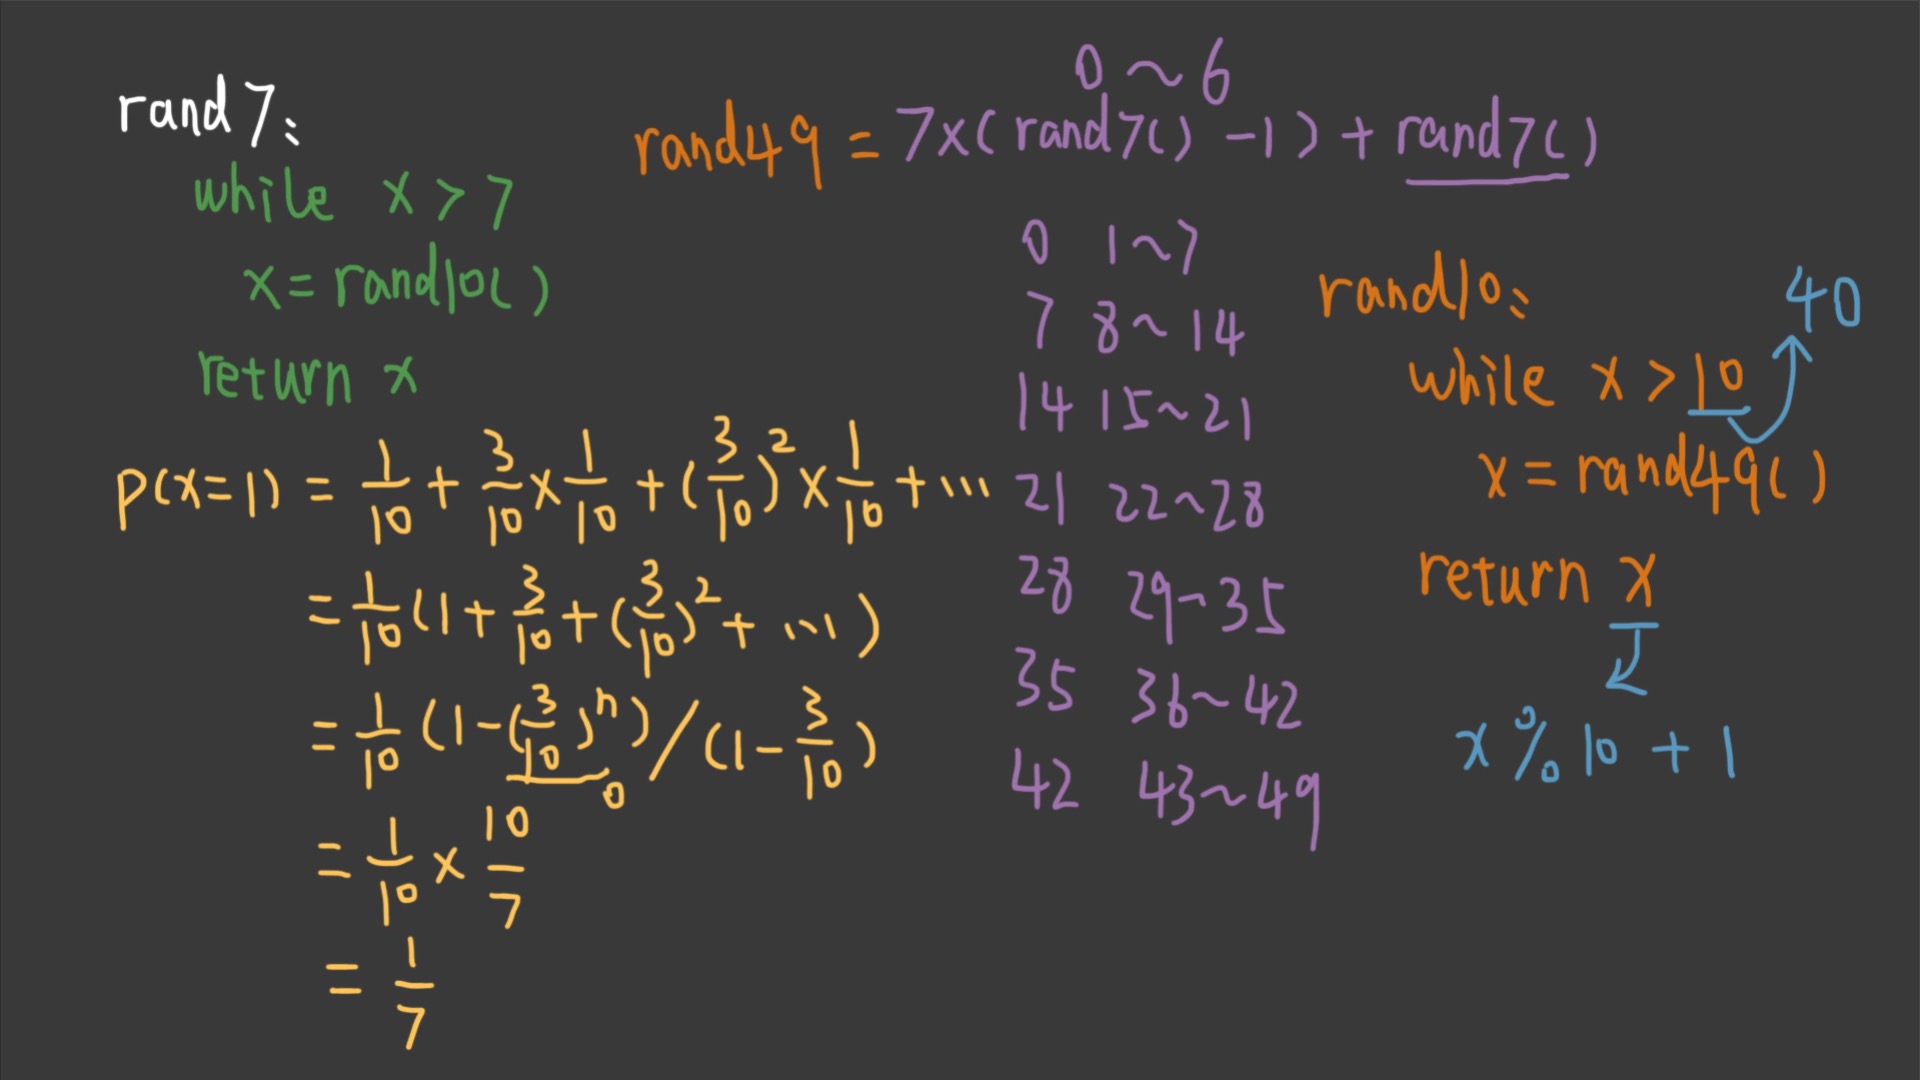 rand7:
while x > 7
x = rand10()
return x
P(x=1) = 1/10 + 3/10 × 1/10 + (3/10)² × 1/10 + ...
= 1/10 (1 + 3/10 + (3/10)² + ...)
= 1/10 (1 - (3/10)ⁿ) / (1 - 3/10)
0
= 1/10 × 10/7
= 1/7
0 ~ 6
rand49 = 7x( rand7() - 1 ) + rand7()
0 1~7
7 8~14
14 15~21
21 22~28
28 29~35
35 36~42
42 43~49
rand10:
40
while x > 10
x = rand49()
return x
x % 10 + 1